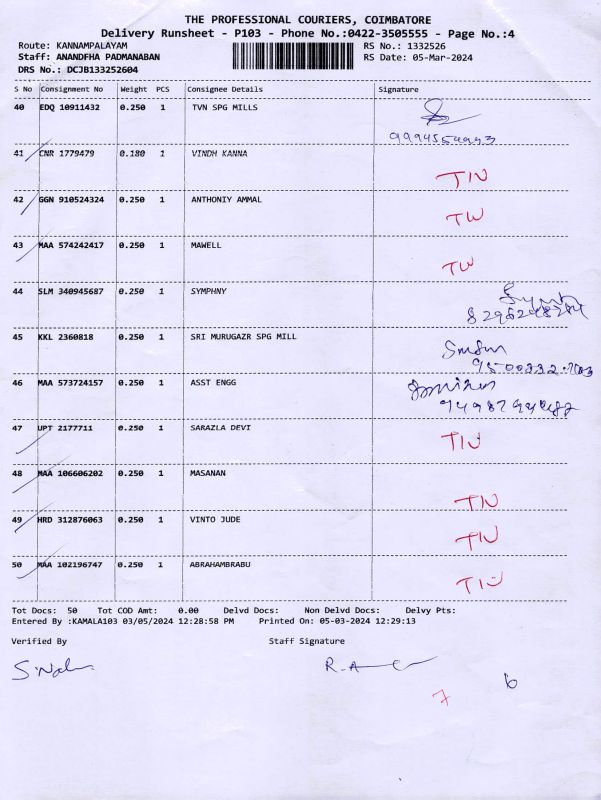 THE PROFESSIONAL COURIERS, COIMBATORE
Delivery Runsheet - P103 - Phone No.:0422-3505555 - Page No.:4
Route: KANNAMPALAYAM RS No.: 1332526
Staff: ANANDFHA PADMANABAN RS Date: 05-Mar-2024
DRS No.: DCJB133252604
S No Consignment No Weight PCS Consignee Details Signature
40 EDQ 10911432 0.250 1 TVN SPG MILLS
41 CNR 1779479 0.180 1 VINDH KANNA
TIN
42 GGN 910524324 0.250 1 ANTHONIY AMMAL
TW
43 MAA 574242417 0.250 1 MAWELL
TW
44 SLM 340945687 0.250 1 SYMPHNY
45 KKL 2360818 0.250 1 SRI MURUGAZR SPG MILL
46 MAA 573724157 0.250 1 ASST ENGG
47 UPT 2177711 0.250 1 SARAZLA DEVI
TIN
48 MAA 106606202 0.250 1 MASANAN
TIN
49 HRD 312876063 0.250 1 VINTO JUDE
TIN
50 MAA 102196747 0.250 1 ABRAHAMBRABU
TIN
Tot Docs: 50 Tot COD Amt: 0.00 Delvd Docs: Non Delvd Docs: Delvy Pts:
Entered By :KAMALA103 03/05/2024 12:28:58 PM Printed On: 05-03-2024 12:29:13
Verified By Staff Signature
7 6